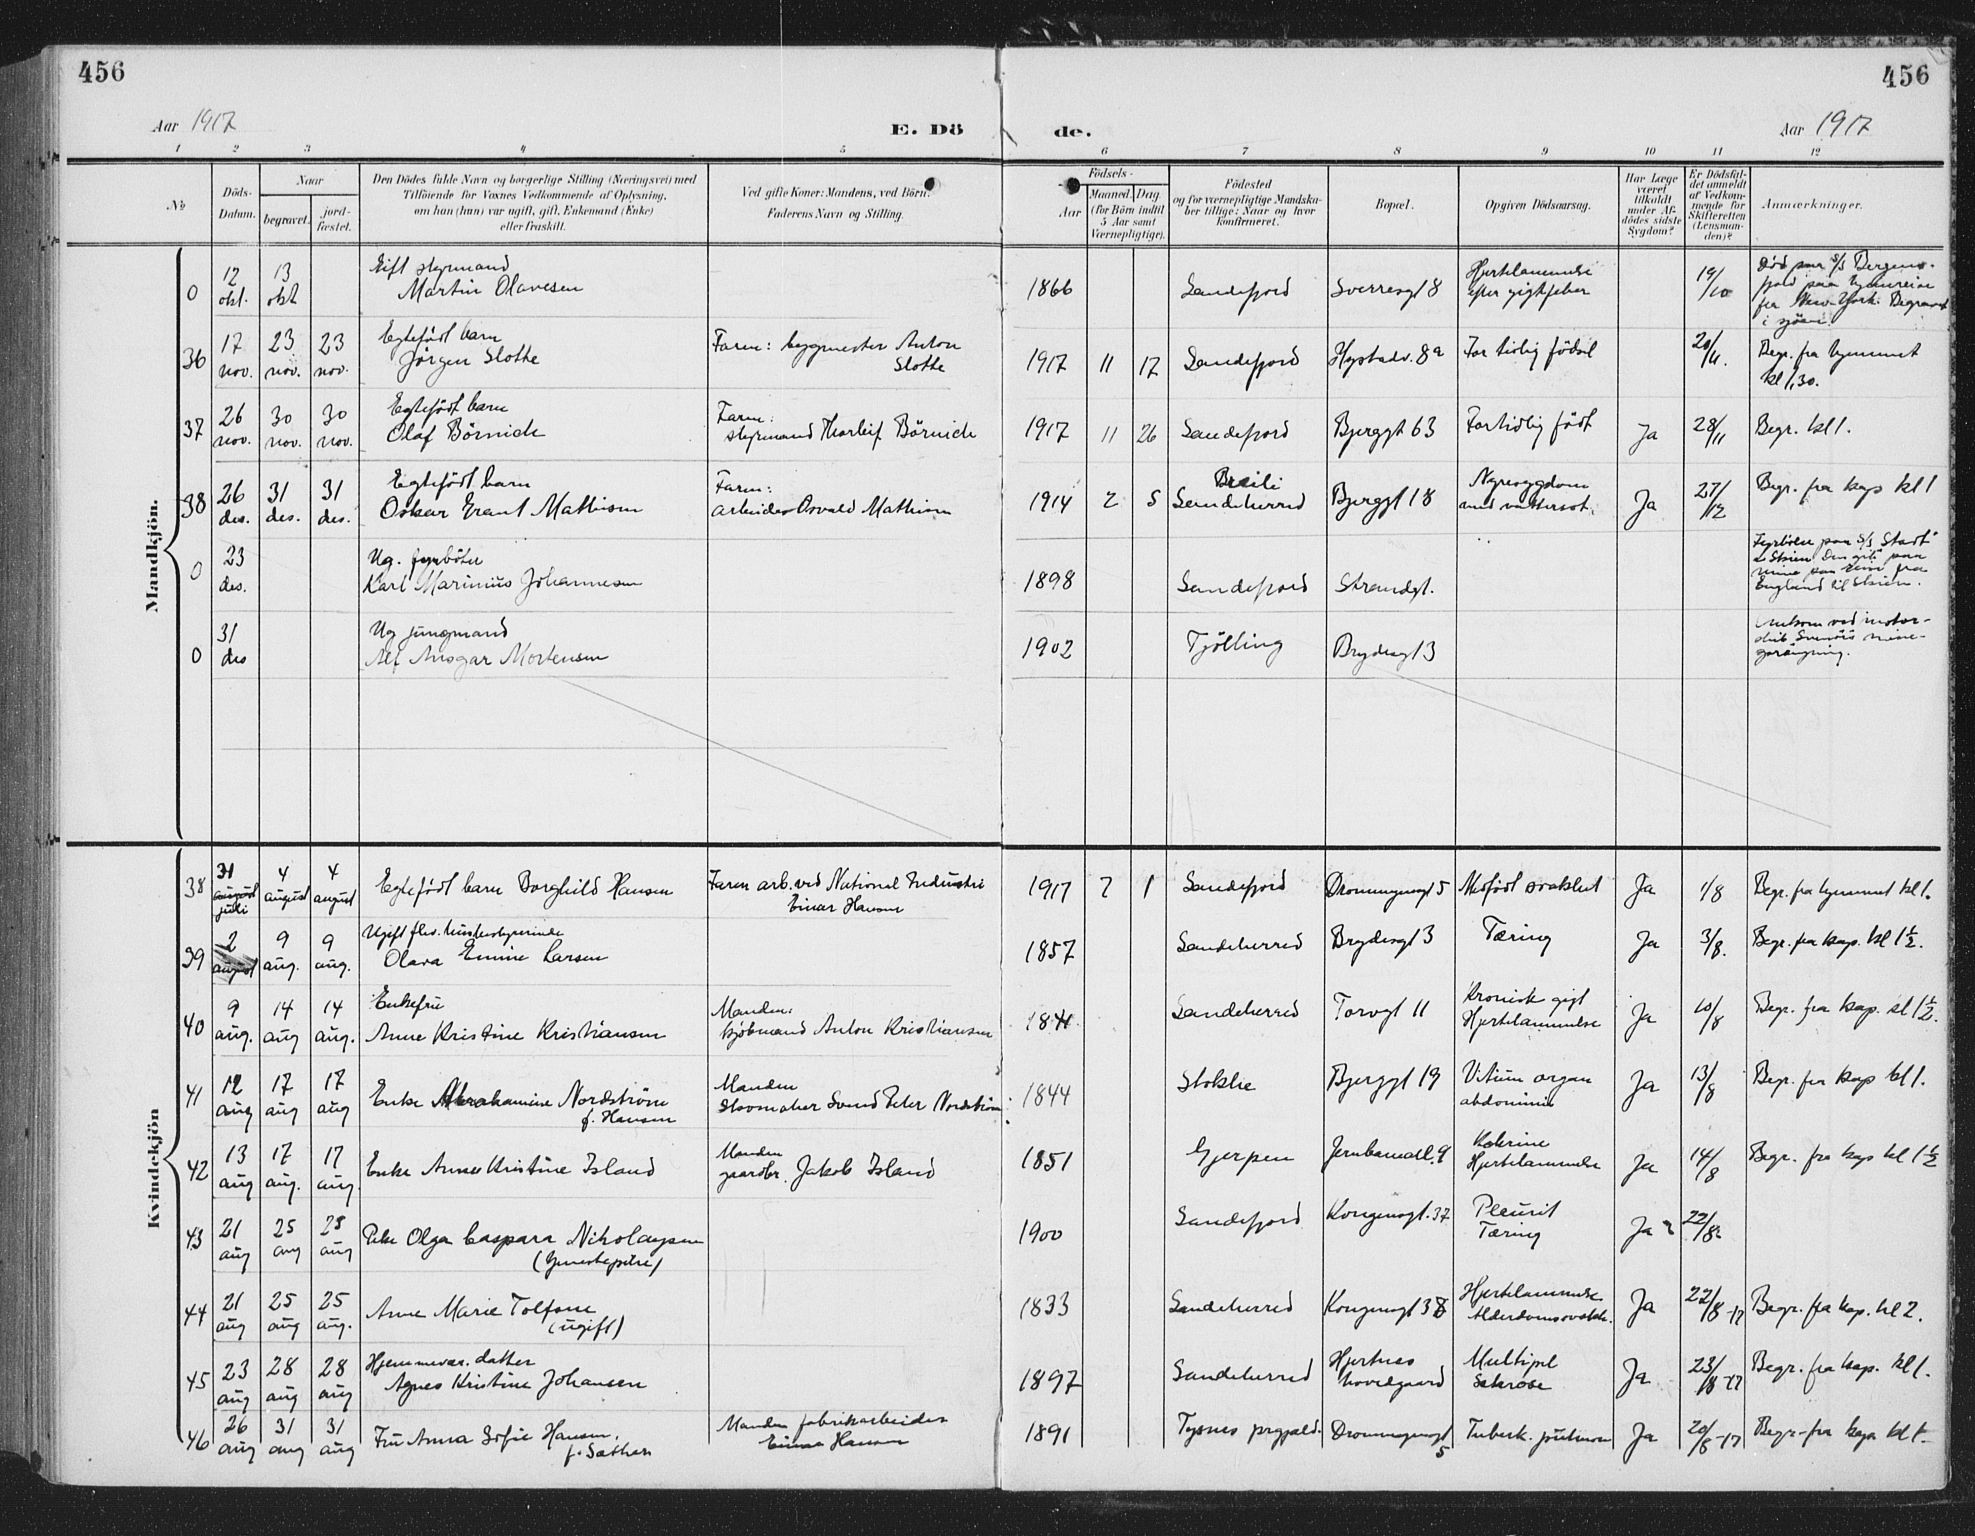 456
456
Aar 1917
E. Dö
de.
Aar 1917
1 2 3 4 5 6 7 8 9 10 11 12
No
Döds-
Datum.
Naar
begravet.
jord-
fæstet.
Den Dödes fulde Navn og borgerlige Stilling (Næringsvei) med
Tilföiende for Voxnes Vedkommende af Oplysning,
om han (hun) var ugift, gift, Enkemand (Enke)
eller fraskilt.
Ved gifte Koner: Mandens, ved Börn:
Faderens Navn og Stilling.
Födsels-
Aar
Maaned.
Dag.
(for Börn indtil
5 Aar samt
Værnepligtige).
Födested
og for værnepligtige Mandska-
ber tillige: Naar og hvor
konfirmeret.
Bopæl.
Opgiven Dödsaarsag.
Har Læge
været
tilkaldt
under Af-
dödes sidste
Sygdom?
Er Dödsfal-
det anmeldt
af Vedkom-
mende for
Skifteretten
(Lensman-
den)?
Anmærkninger.
Mandkjön.
0 12 okt. 13 okt Gift styrmand
Martin Olavesen 1866 Sandefjord Sverresgt 8 Hjertelammelse
efter gigtfeber 19/10 Död paa S/S Bergens-
fjord paa hjemreise
fra New-York. Begravet
i sjöen.
36 17 nov. 23 nov. 23 nov. Egtefödt barn
Jörgen Slotte Faren: bygmester Anton
Slotte 1917 11 17 Sandefjord Hystadv. 8a For tidlig födsel 20/11. Begr. fra hjemmet
kl 1,30.
37 26 nov. 30 nov. 30 nov. Egtefödt barn
Olaf Börnich Faren:
styrmand Thorleif Börnich 1917 11 26 Sandefjord Bjerggt 63 For tidlig födt Ja 28/11 Begr. kl 1.
38 26 des. 31 des. 31 des. Egtefödt barn
Oskar Ernst Mathisen Faren:
arbeider Osvald Mathisen 1914 2 5
Sandeherred Bjerggt 18 Nyresygdom
med vattersot. Ja 27/12 Begr. fra kap kl 1
0 23 des. Ug. fyrböter
Karl Marinius Johannesen 1898 Sandefjord Strandgt. Fyrböter paa S/S "Start"
av Skien. Den gik paa
mine paa reise fra
England til Skien.
0 31 des Ug jungmand
Alf Ansgar Mortensen 1902 Tjölling Brydesgt 3 Omkom ved motor-
mine-
sprängning.
Kvindekjön
38 31 august juli 4 august 4 august Egtefödt barn Borghild Hansen Faren arb. ved National Industri
Einar Hansen 1917 7 1 Sandefjord Dronningensgt 5 Medfödt svakhet Ja 1/8 Begr. fra hjemmet kl 1.
39 2 august 9 aug. 9 aug. Ugift
Olava Emine Larsen 1857 Sandeherred Brydesgt 3 Tæring Ja 3/8. Begr. fra kap. kl 1½.
40 9 aug. 14 aug 14 aug. Enkefru
Anne Kristine Kristiansen Manden:
kjöbmand Anton Kristiansen 1841 Sandeherred Torvgt 11 Kronisk gigt
Hjertelammelse Ja 10/8 Begr. fra kap. kl 1½.
41 12 aug 17 aug 17 aug Enke Abrahamine Nordström
f. Hansen Manden
Skomaker Svend Peter Nordström 1844 Stokke Bjerggt 19 Vitium organ
abdominis Ja 13/8 Begr. fra kap kl 1.
42 13 aug 17 aug. 17 aug. Enke Anne Kristine Island Manden
gaardbr. Jakob Island 1851 Gjerpen Jernbaneal. 9
Hjertelammelse Ja 14/8 Begr. fra kap kl 1½
43 21 aug 25 aug 25 aug Pike Olga Caspara Nikolaysen
1900 Sandefjord Kongensgt. 37 Pleurit
Tæring Ja 22/8
44 21 aug 25 aug 25 aug. Anne Marie Tolfsen
(ugift) 1833 Sandeherred Kongensgt 38 Hjertelammelse
Alderdomssvakh. Ja 22/8-17 Begr. fra kap. kl 2.
45 23 aug 28 aug 28 aug Hjemmevær. datter
Agnes Kristine Johansen 1897 Sandeherred Hjertnes
hovedgaard Multipel
Sclerose Ja 23/8-17 Begr. fra kap. kl 1.
46 26 aug 31 aug 31 aug Fru Anna Sofie Hansen.
f. Sæther Manden fabrikarbeider
Einar Hansen 1891 Tysnes prgjeld. Dronningensgt
5 Tuberk. pulmon Ja 28/8-17 Begr. fra kap kl 1.